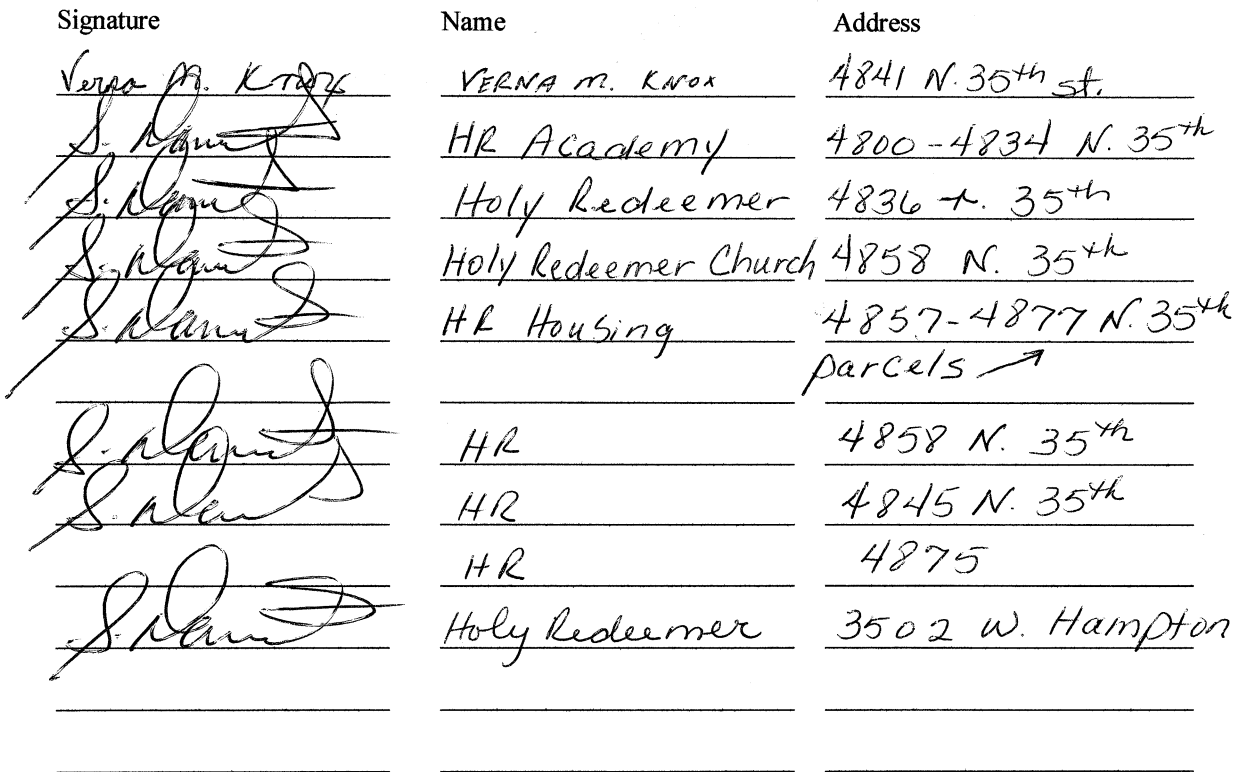 Signature Name Address
Verna M. Knox VERNA M. KNOX 4841 N. 35th st.
S. HR Academy 4800-4834 N. 35th
S. Holy Redeemer 4836 N. 35th
S. Holy Redeemer Church 4858 N. 35th
S. HR Housing 4857-4877 N. 35th
parcels
S. HR 4858 N. 35th
S. HR 4845 N. 35th
HR 4875
S. Holy Redeemer 3502 W. Hampton